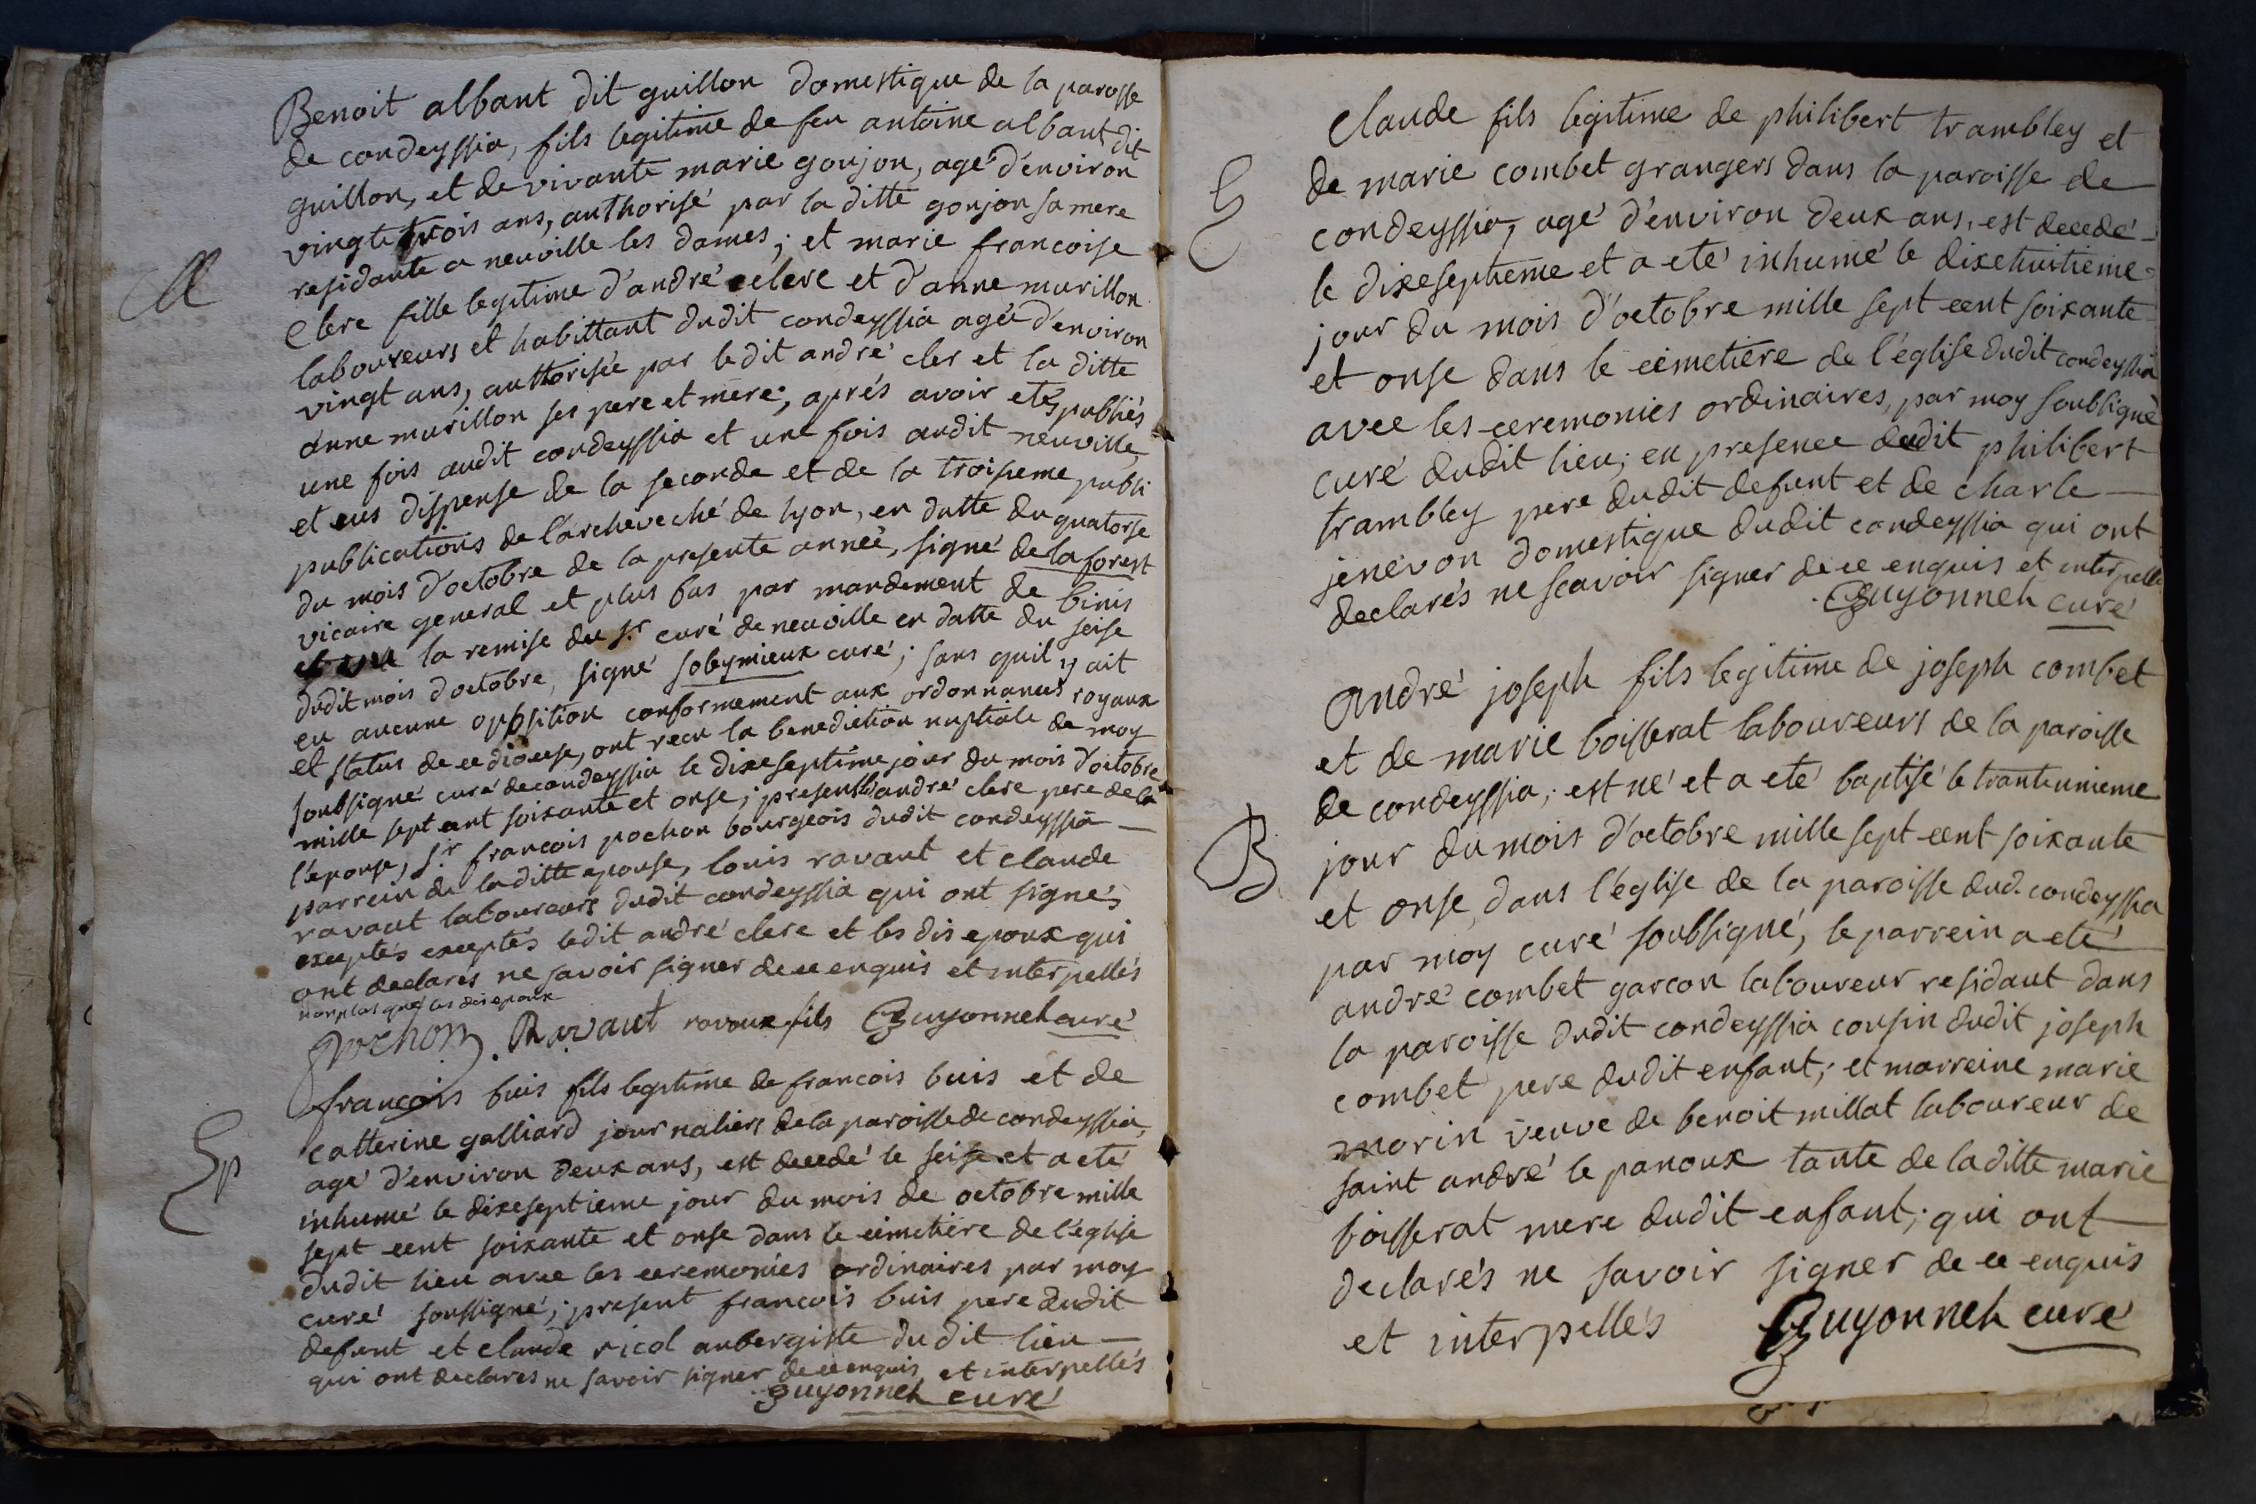 Benoit albant dit guillon domestique de la paroisse
de condeyssia, fils legitime de feu antoine albant dit
guillon, et de vivante marie goujon, agé d'environ
vingt trois ans, authorisé par la ditte goujon sa mere
residante a neuville les dames; et marie francoise
M
Clerc fille legitime d'andré clerc et d'anne murillon
laboureurs et habittant dudit condeyssia ageé d'environ
vingt ans, authorisée par le dit andré cler et la ditte
anne murillon ses pere et mere; aprés avoir etés publiés
une fois audit condeyssia et une fois audit neuville,
et eus dispense de la seconde et de la troisieme publi
publications de l'archeveché de lyon, en datte du quatorse
du mois d'octobre de la presente année, signé de la forest
vicaire general et plus bas par mandement de binis
la remise du sr curé de neuville en datte du seise
dudit mois d'octobre, signé sobymieux curé; sans quil y ait
eu aucune opposition conformement aux ordonnances royaux
et status de ce diocese, ont recu la benediction nuptiale de moy
soubsigné curé de condeyssia le dixseptime jour du mois d'octobre
mille sept cent soixante et onse; present andré clerc pere de la
l'epouse, sr. francois pochon bourgeois dudit condeyssia
parrein de la ditte epouse, louis ravaut et claude
ravaut laboureurs dudit condeyssia qui ont signés
exceptés exceptés ledit andré clerc et les dis epoux qui
ont declarés ne savoir signer de ce enquis et interpellés
non plus que les dis epoux
pochon Ravaut ravoux fils Guyonneh curé
françois buis fils legitime de francois buis et de
Catterine galliard journaliers de la paroisse de condeyssia,
Sp
agé d'environ deux ans, est decedé le seise et a eté
inhumé le dixeseptieme jour du mois de octobre mille
sept cent soixante et onse dans le cimetiere de l'église
dudit lieu avec les ceremonies ordinaires par moy
curé soussigné; present francois buis pere dudit
defunt et claude ricol aubergiste du dit lieu
qui ont declares ne savoir signer de ce enquis et interpellés
Guyonneh curé
Claude fils legitime de philibert trambley et
de marie combet grangers dans la paroisse de
condeyssia, agé d'environ deux ans, est decedé
le dixeseptieme et a eté inhumé le dixehuitieme
jour du mois d'octobre mille sept cent soixante
et onse dans le cimetiere de l'église dudit condeyssia
avec les ceremonies ordinaires, par moy soubsigné
curé dudit lieu; en presence dudit philibert
trambley pere dudit defunt et de charle
jenevon domestique dudit condeyssia qui ont
declarés ne scavoir signer de ce enquis et interpellé
Guyonneh curé
andré joseph fils legitime de joseph combet
et de marie boisserat laboureurs de la paroisse
de condeyssia; est né et a eté baptisé le trantunieme
B
jour du mois d'octobre mille sept cent soixante
et onse, dans l'eglise de la paroisse dud. condeyssia
par moy curé soubsigné, le parrein a eté
andré combet garcon laboureur residant dans
la paroisse dudit condeyssia cousin dudit joseph
combet pere dudit enfant; et marreine marie
morin veuve de benoit millat laboureur de
saint andré le panoux tante de la ditte marie
boisserat mere dudit enfant; qui ont
declarés ne savoir signer de ce enquis
et interpellés Guyonneh curé